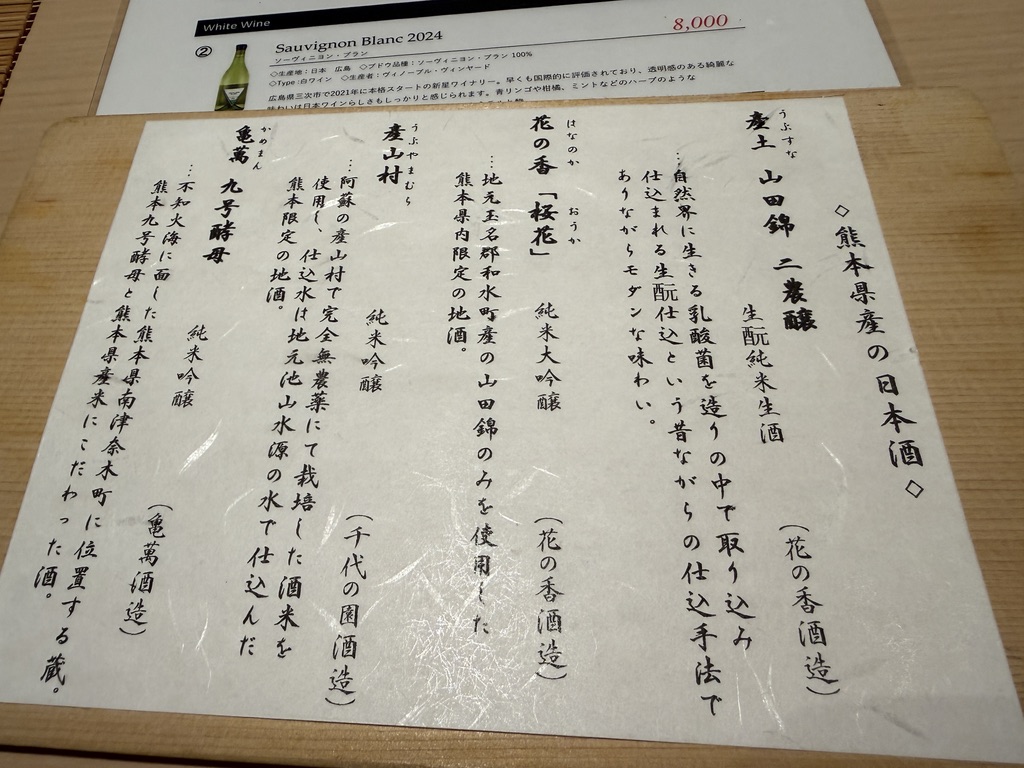 White Wine
② Sauvignon Blanc 2024 8,000
ソーヴィニヨン・ブラン
◇生産地：日本 広島 ◇ブドウ品種：ソーヴィニヨン・ブラン 100%
◇Type：白ワイン ◇生産者：ヴィノーブル・ヴィンヤード
広島県三次市で2021年に本格スタートの新星ワイナリー。早くも国際的に評価されており、透明感のある綺麗な
味わいは日本ワインらしさもしっかりと感じられます。青リンゴや柑橘、ミントなどのハーブのような
◇熊本県産の日本酒◇
うぶすな
産土 山田錦 二農醸
生酛純米生酒 (花の香酒造)
…自然界に生きる乳酸菌を造りの中で取り込み
仕込まれる生酛仕込という昔ながらの仕込手法で
ありながらモダンな味わい。
はなのか おうか
花の香「桜花」
純米大吟醸 (花の香酒造)
…地元玉名郡和水町産の山田錦のみを使用した
熊本県内限定の地酒。
うぶやまむら
産山村
純米吟醸 (千代の園酒造)
…阿蘇の産山村で完全無農薬にて栽培した酒米を
使用し、仕込水は地元池山水源の水で仕込んだ
熊本限定の地酒。
かめまん
亀萬 九号酵母
純米吟醸 (亀萬酒造)
…不知火海に面した熊本県南津奈木町に位置する蔵。
熊本九号酵母と熊本県産米にこだわった酒。